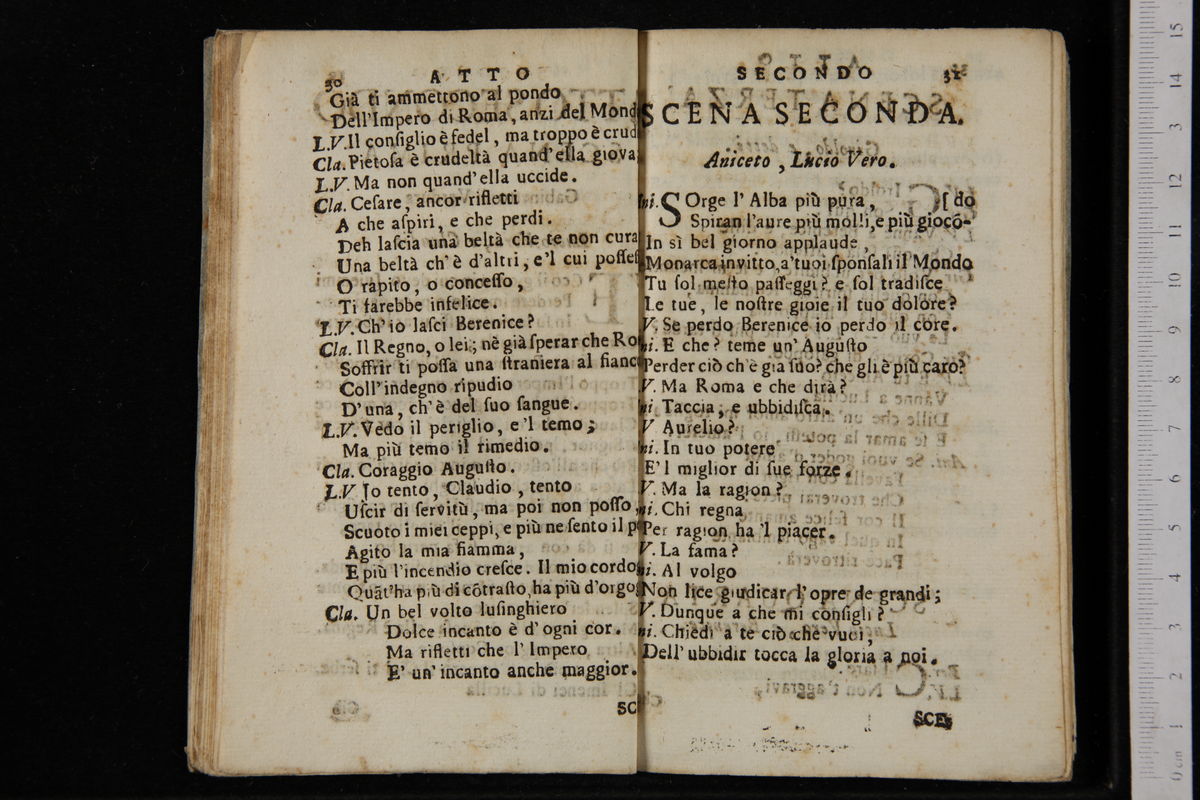 30 ATTO
Già ti ammettono al pondo
Dell'Impero di Roma, anzi del Mond
L.V.Il conſiglio è fedel, ma troppo è crud
Cla. Pietoſa è crudeltà quand' ella giova
L.V. Ma non quand' ella uccide.
Cla. Ceſare, ancor rifletti
A che aſpiri, e che perdi.
Deh laſcia una beltà che te non cura
Una beltà ch' è d'altri, e'l cui poſſeſ
O rapito, o conceſſo,
Ti farebbe infelice.
L.V. Ch'io laſci Berenice?
Cla. Il Regno, o lei; nè già ſperar che Ro
Soffrir ti poſſa una ſtraniera al fianc
Coll'indegno ripudio
D'una, ch'è del ſuo ſangue.
L.V. Vedo il periglio, e 'l temo;
Ma più temo il rimedio.
Cla. Coraggio Auguſto.
L.V Jo tento, Claudio, tento
Uſcir di ſervitù, ma poi non poſſo,
Scuoto i miei ceppi, e più ne ſento il p
Agito la mia fiamma,
E più l'incendio creſce. Il mio cordo
Quāt'ha più di cōtraſto, ha più d'orgo
Cla. Un bel volto luſinghiero
Dolce incanto è d' ogni cor.
Ma rifletti che l' Impero
E' un' incanto anche maggior.
SC
SECONDO 31
SCENA SECONDA.
Aniceto, Lucio Vero.
ni. SOrge l' Alba più pura, [do
Spiran l'aure più molli, e più giocō-
In sì bel giorno applaude,
Monarca invitto, a'tuoi ſponſali il Mondo
Tu ſol meſto paſſeggi? e ſol tradiſce
Le tue, le noſtre gioie il tuo dolore?
V. Se perdo Berenice io perdo il core.
ni. E che? teme un' Auguſto
Perder ciò ch'è gia ſuo? che gli è più caro?
V. Ma Roma e che dirà?
ni Taccia, e ubbidiſca.
V Aurelio?
ni. In tuo potere
E'l miglior di ſue forze.
V. Ma la ragion?
ni. Chi regna
Per ragion ha 'l piacer.
V. La fama?
ni. Al volgo
Non lice giudicar l'opre de grandi;
V. Dunque a che mi conſigli?
ni. Chiedi a te ciò che vuoi,
Dell' ubbidir tocca la gloria a noi.
SCE